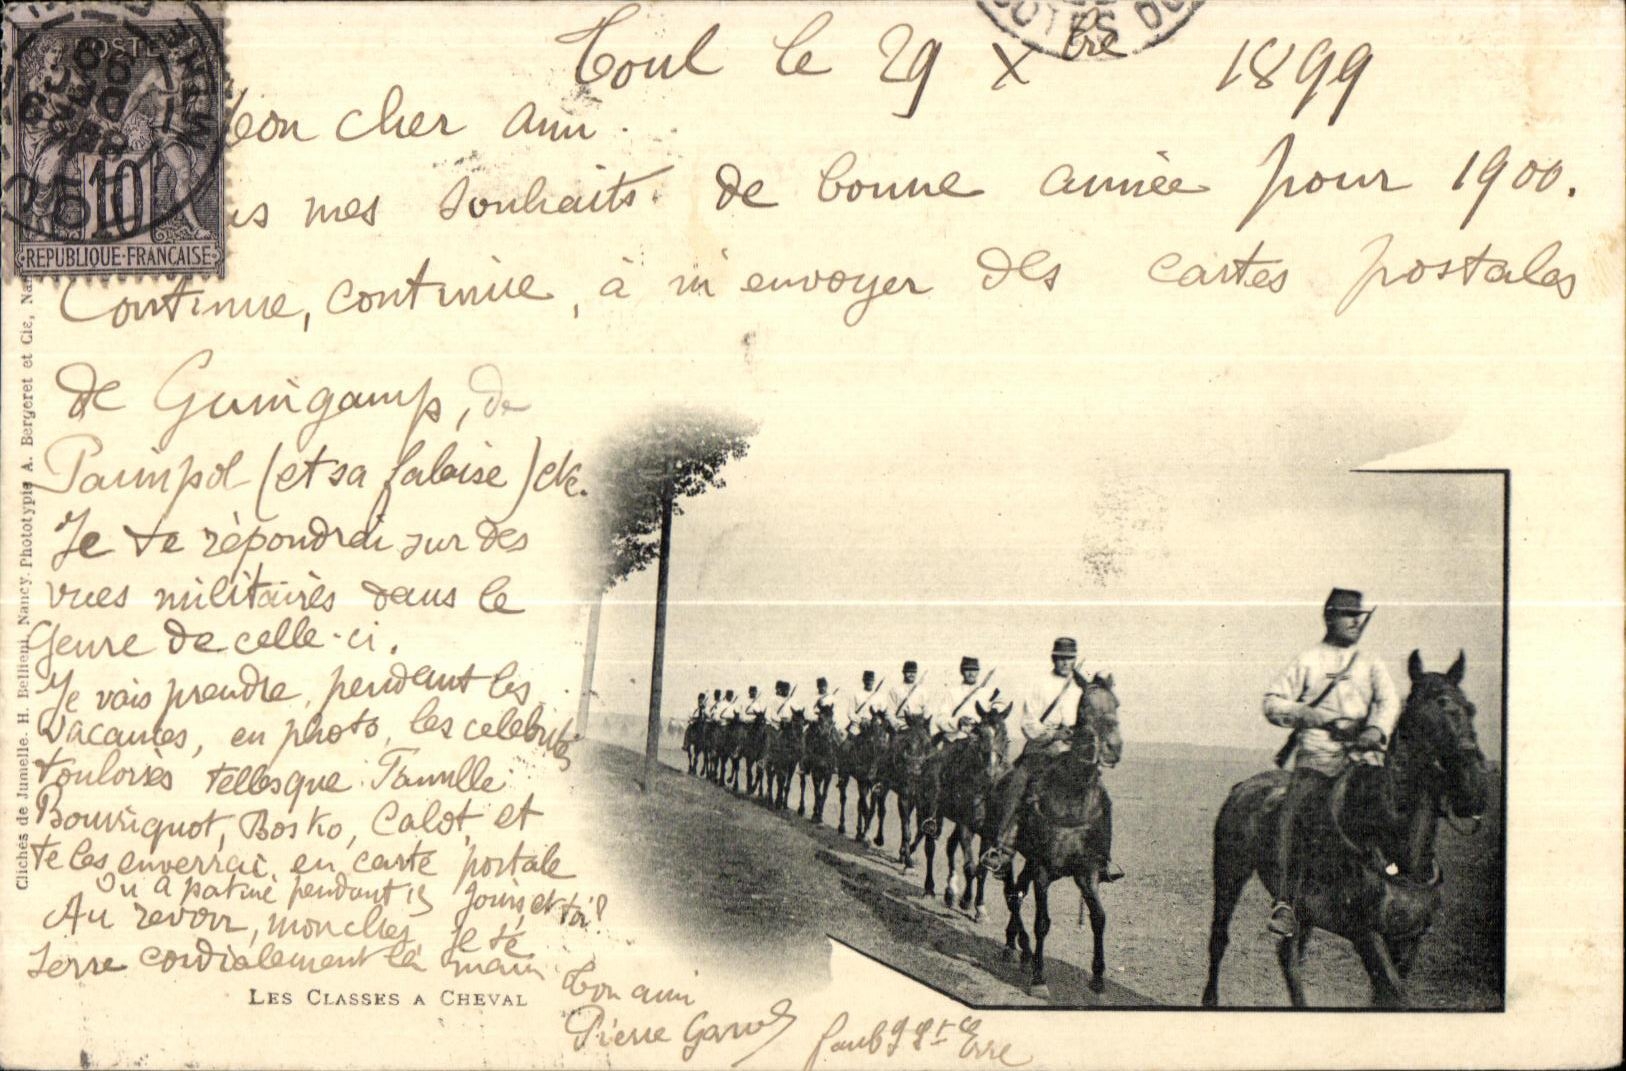 Toul le 29 Xbre 1899
cher ami.
mes souhaits de bonne année pour 1900.
Continue, continue, à m'envoyer des cartes postales
de Guingamp, de
Paimpol (et sa falaise) etc.
Je te répondrai sur des
vues militaires dans le
genre de celle-ci.
Je vais prendre, pendant les
vacances, en photo, les célébrités
touloises telles que: Famille
Bouvriquot, Bosko, Calot, et
te les enverrai en carte postale
On a patiné pendant 15 jours, et toi?
Au revoir, mon cher, Je te
serre cordialement la main
Ton ami
Pierre
Faubg St Evre
LES CLASSES A CHEVAL
Clichés de Jumelle. H. Bellieni, Nancy. Phototypie A. Bergeret et Cie,
POSTE
10
REPUBLIQUE FRANÇAISE